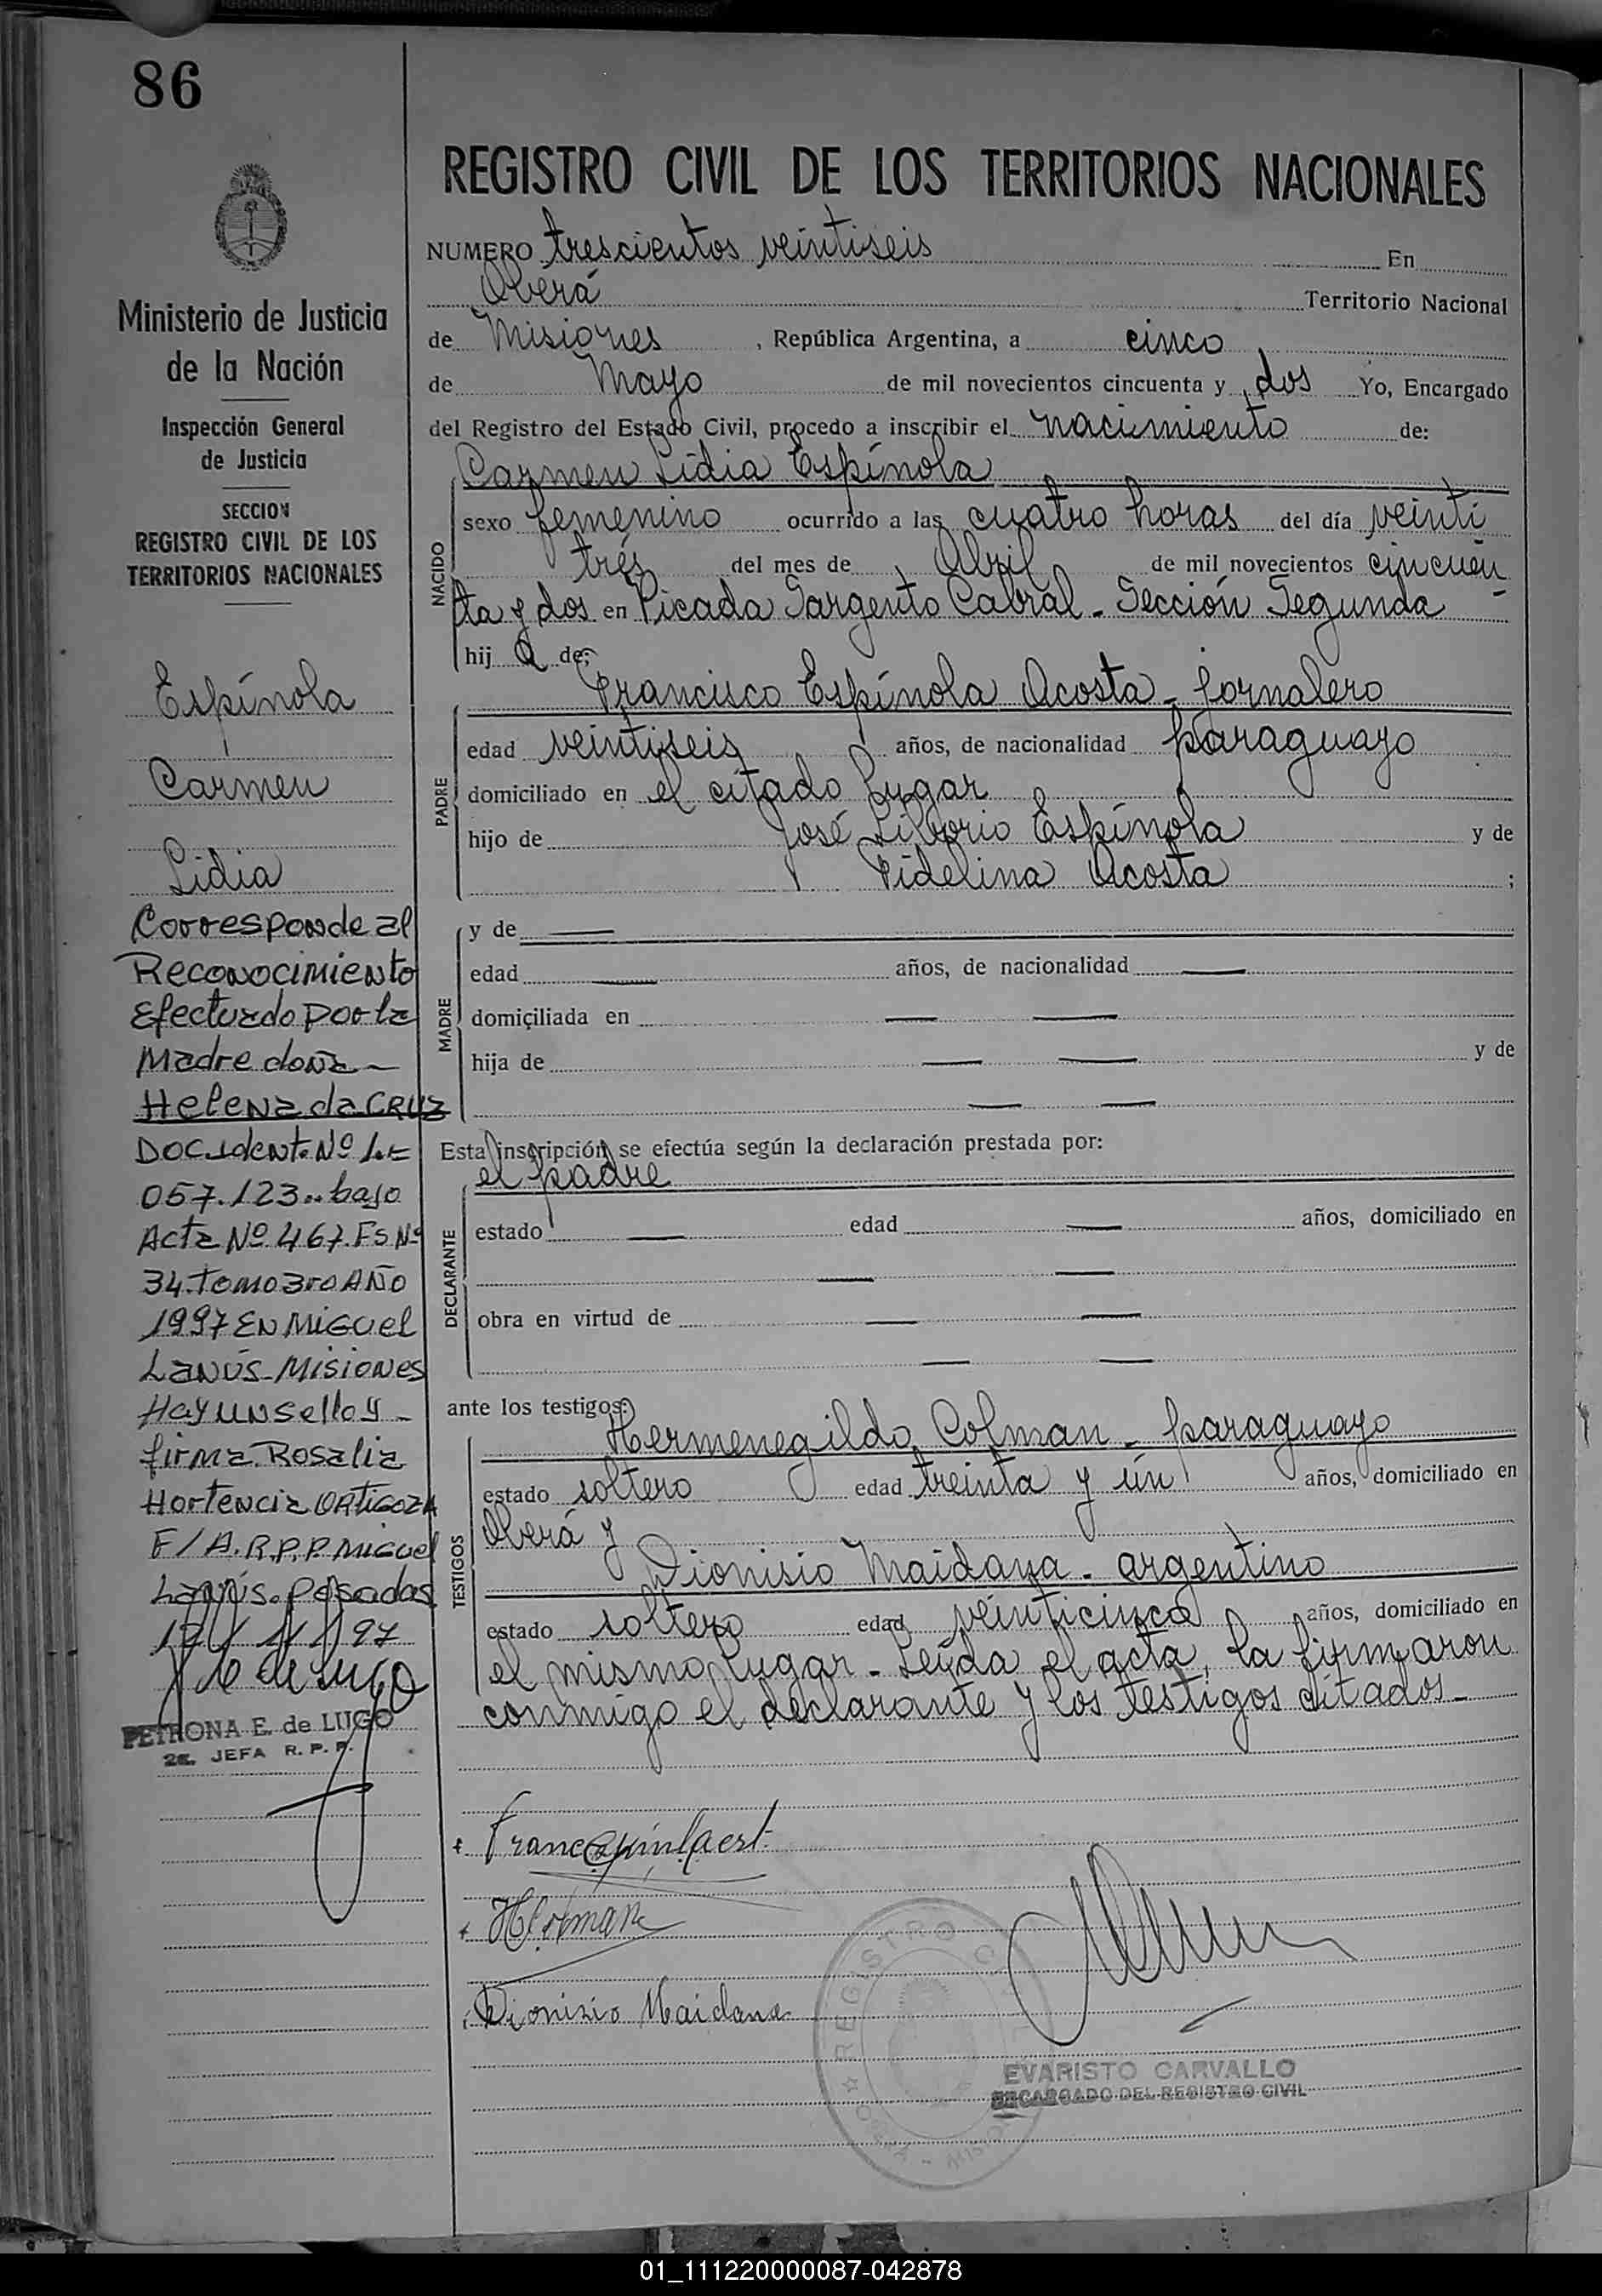 86
REGISTRO CIVIL DE LOS TERRITORIOS NACIONALES
NUMERO trescientos veintiseis En
Oberá Territorio Nacional
de Misiones , República Argentina, a cinco
de Mayo de mil novecientos cincuenta y dos Yo, Encargado
del Registro del Estado Civil, procedo a inscribir el nacimiento de:
Carmen Lidia Espínola
NACIDO
sexo femenino ocurrido a las cuatro horas del día veinti
trés del mes de Abril de mil novecientos cincuen
ta y dos en Picada Sargento Cabral - Sección Segunda
hij a de:
Francisco Espínola Acosta - jornalero
PADRE
edad veintiseis años, de nacionalidad paraguayo
domiciliado en el citado lugar
hijo de José Liborio Espínola y de
Fidelina Acosta ;
MADRE
y de —
edad — años, de nacionalidad —
domiciliada en — —
hija de — — y de
— —
Esta inscripción se efectúa según la declaración prestada por:
el padre
DECLARANTE
estado — edad — años, domiciliado en
— —
obra en virtud de — —
— —
ante los testigos:
Hermenegildo Colman - paraguayo
TESTIGOS
estado soltero edad treinta y un años, domiciliado en
Oberá y
Dionisio Maidana - argentino
estado soltero edad veinticinco años, domiciliado en
el mismo lugar - Leída el acta, la firmaron
conmigo el declarante y los testigos citados -
Dionisio Maidana
REGISTRO
EVARISTO CARVALLO
ENCARGADO DEL REGISTRO CIVIL
Ministerio de Justicia
de la Nación
Inspección General
de Justicia
SECCION
REGISTRO CIVIL DE LOS
TERRITORIOS NACIONALES
Espínola
Carmen
Lidia
Corresponde al
Reconocimiento
Efectuado por la
Madre doña -
Helena da CRUZ
DOC. Ident. Nº L.E
057.123.. bajo
Acta Nº 467. Fs Nº
34. Tomo 3ro AÑO
1997 EN MIGUEL
LANÚS - MISIONES
Hay un sello y -
firma. Rosalia
Hortencia ORTIGOZA
E/A. R.P.P. MIGUEL
Lanús. Posadas
/ 11 / 97
PETRONA E. de LUGO
JEFA R. P. P.
01_111220000087-042878